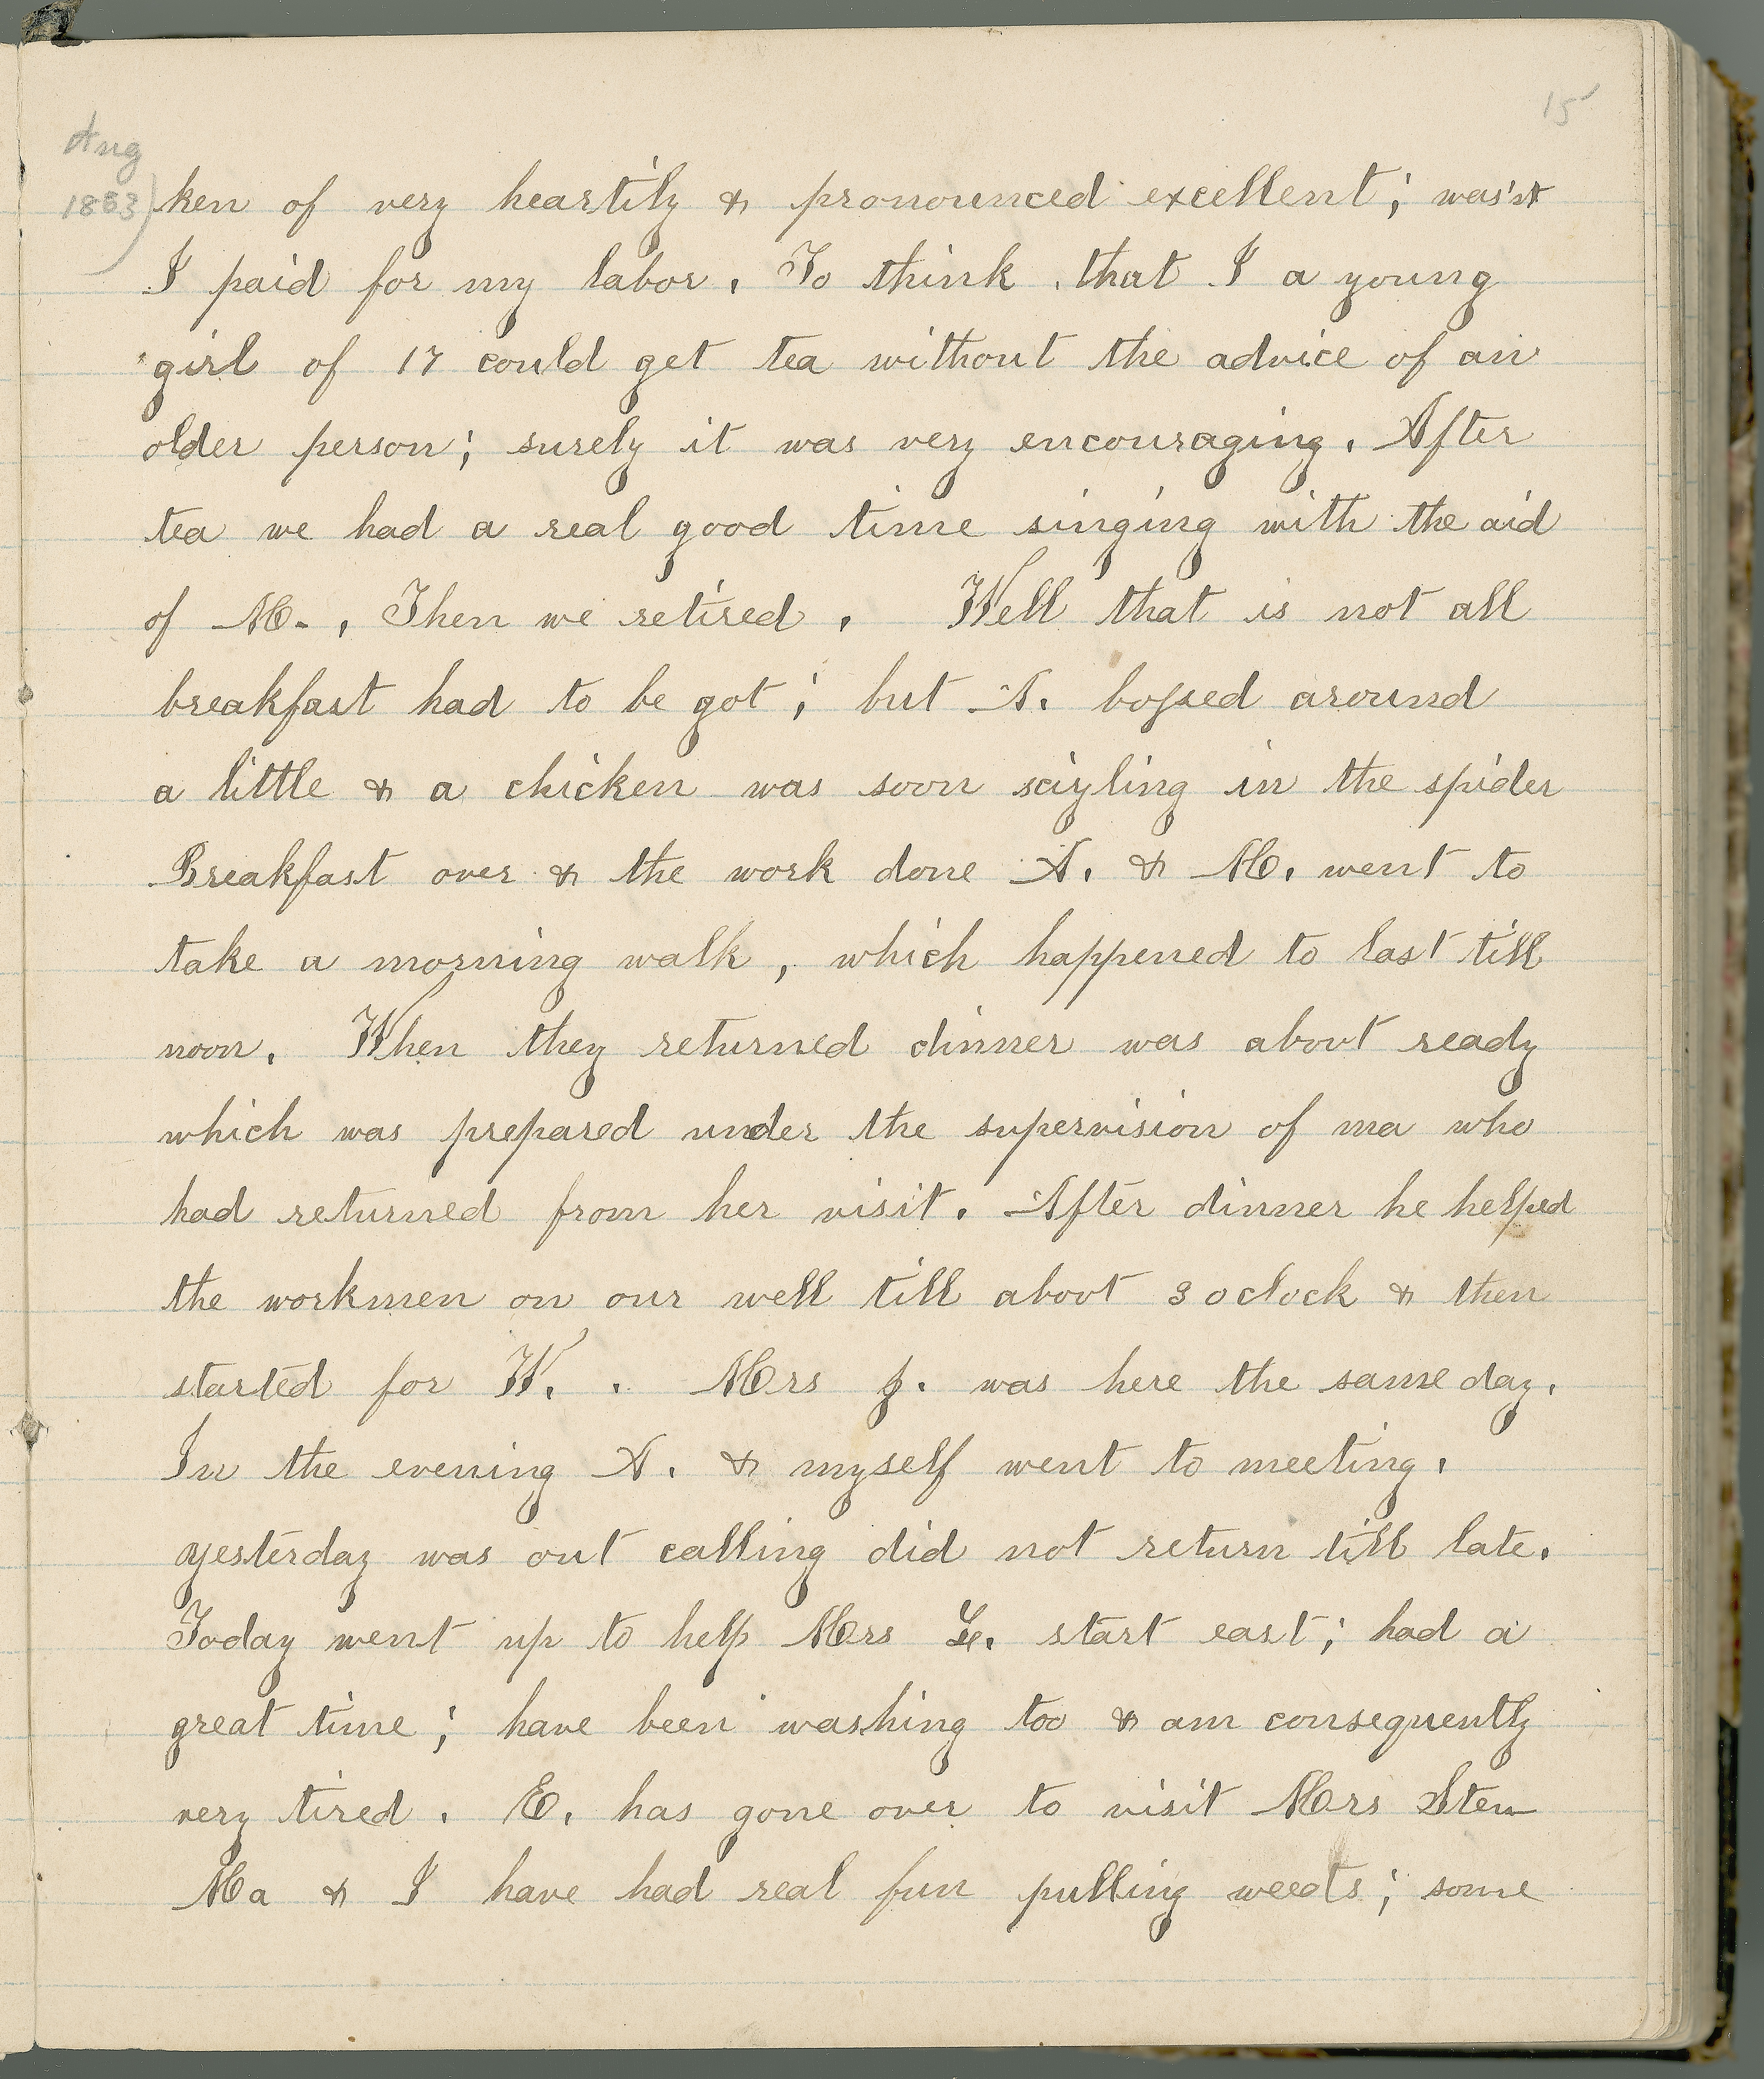 15
Aug
1883)
ken of very heartily & pronounced excellent; was'nt
I paid for my labor. To think that I a young
girl of 17 could get tea without the advice of an
older person; surely it was very encouraging. After
tea we had a real good time singing with the aid
of M. , Then we retired . Well that is not all
breakfast had to be got; but A. bossed around
a little & a chicken was soon scizling in the spider
Breakfast over & the work done A. & M. went to
take a morning walk, which happened to last till
noon. When they returned dinner was about ready
which was prepared under the supervision of ma who
had returned from her visit. After dinner he helped
the workmen on our well till about 3 oclock & then
started for W. . Mrs was here the same day.
In the evening A. & myself went to meeting.
yesterday was out calling did not return till late.
Today went up to help Mrs start east; had a
great time; have been washing too & am consequently
very tired. E. has gone over to visit Mrs Stew
Ma & I have had real fun pulling weeds; some